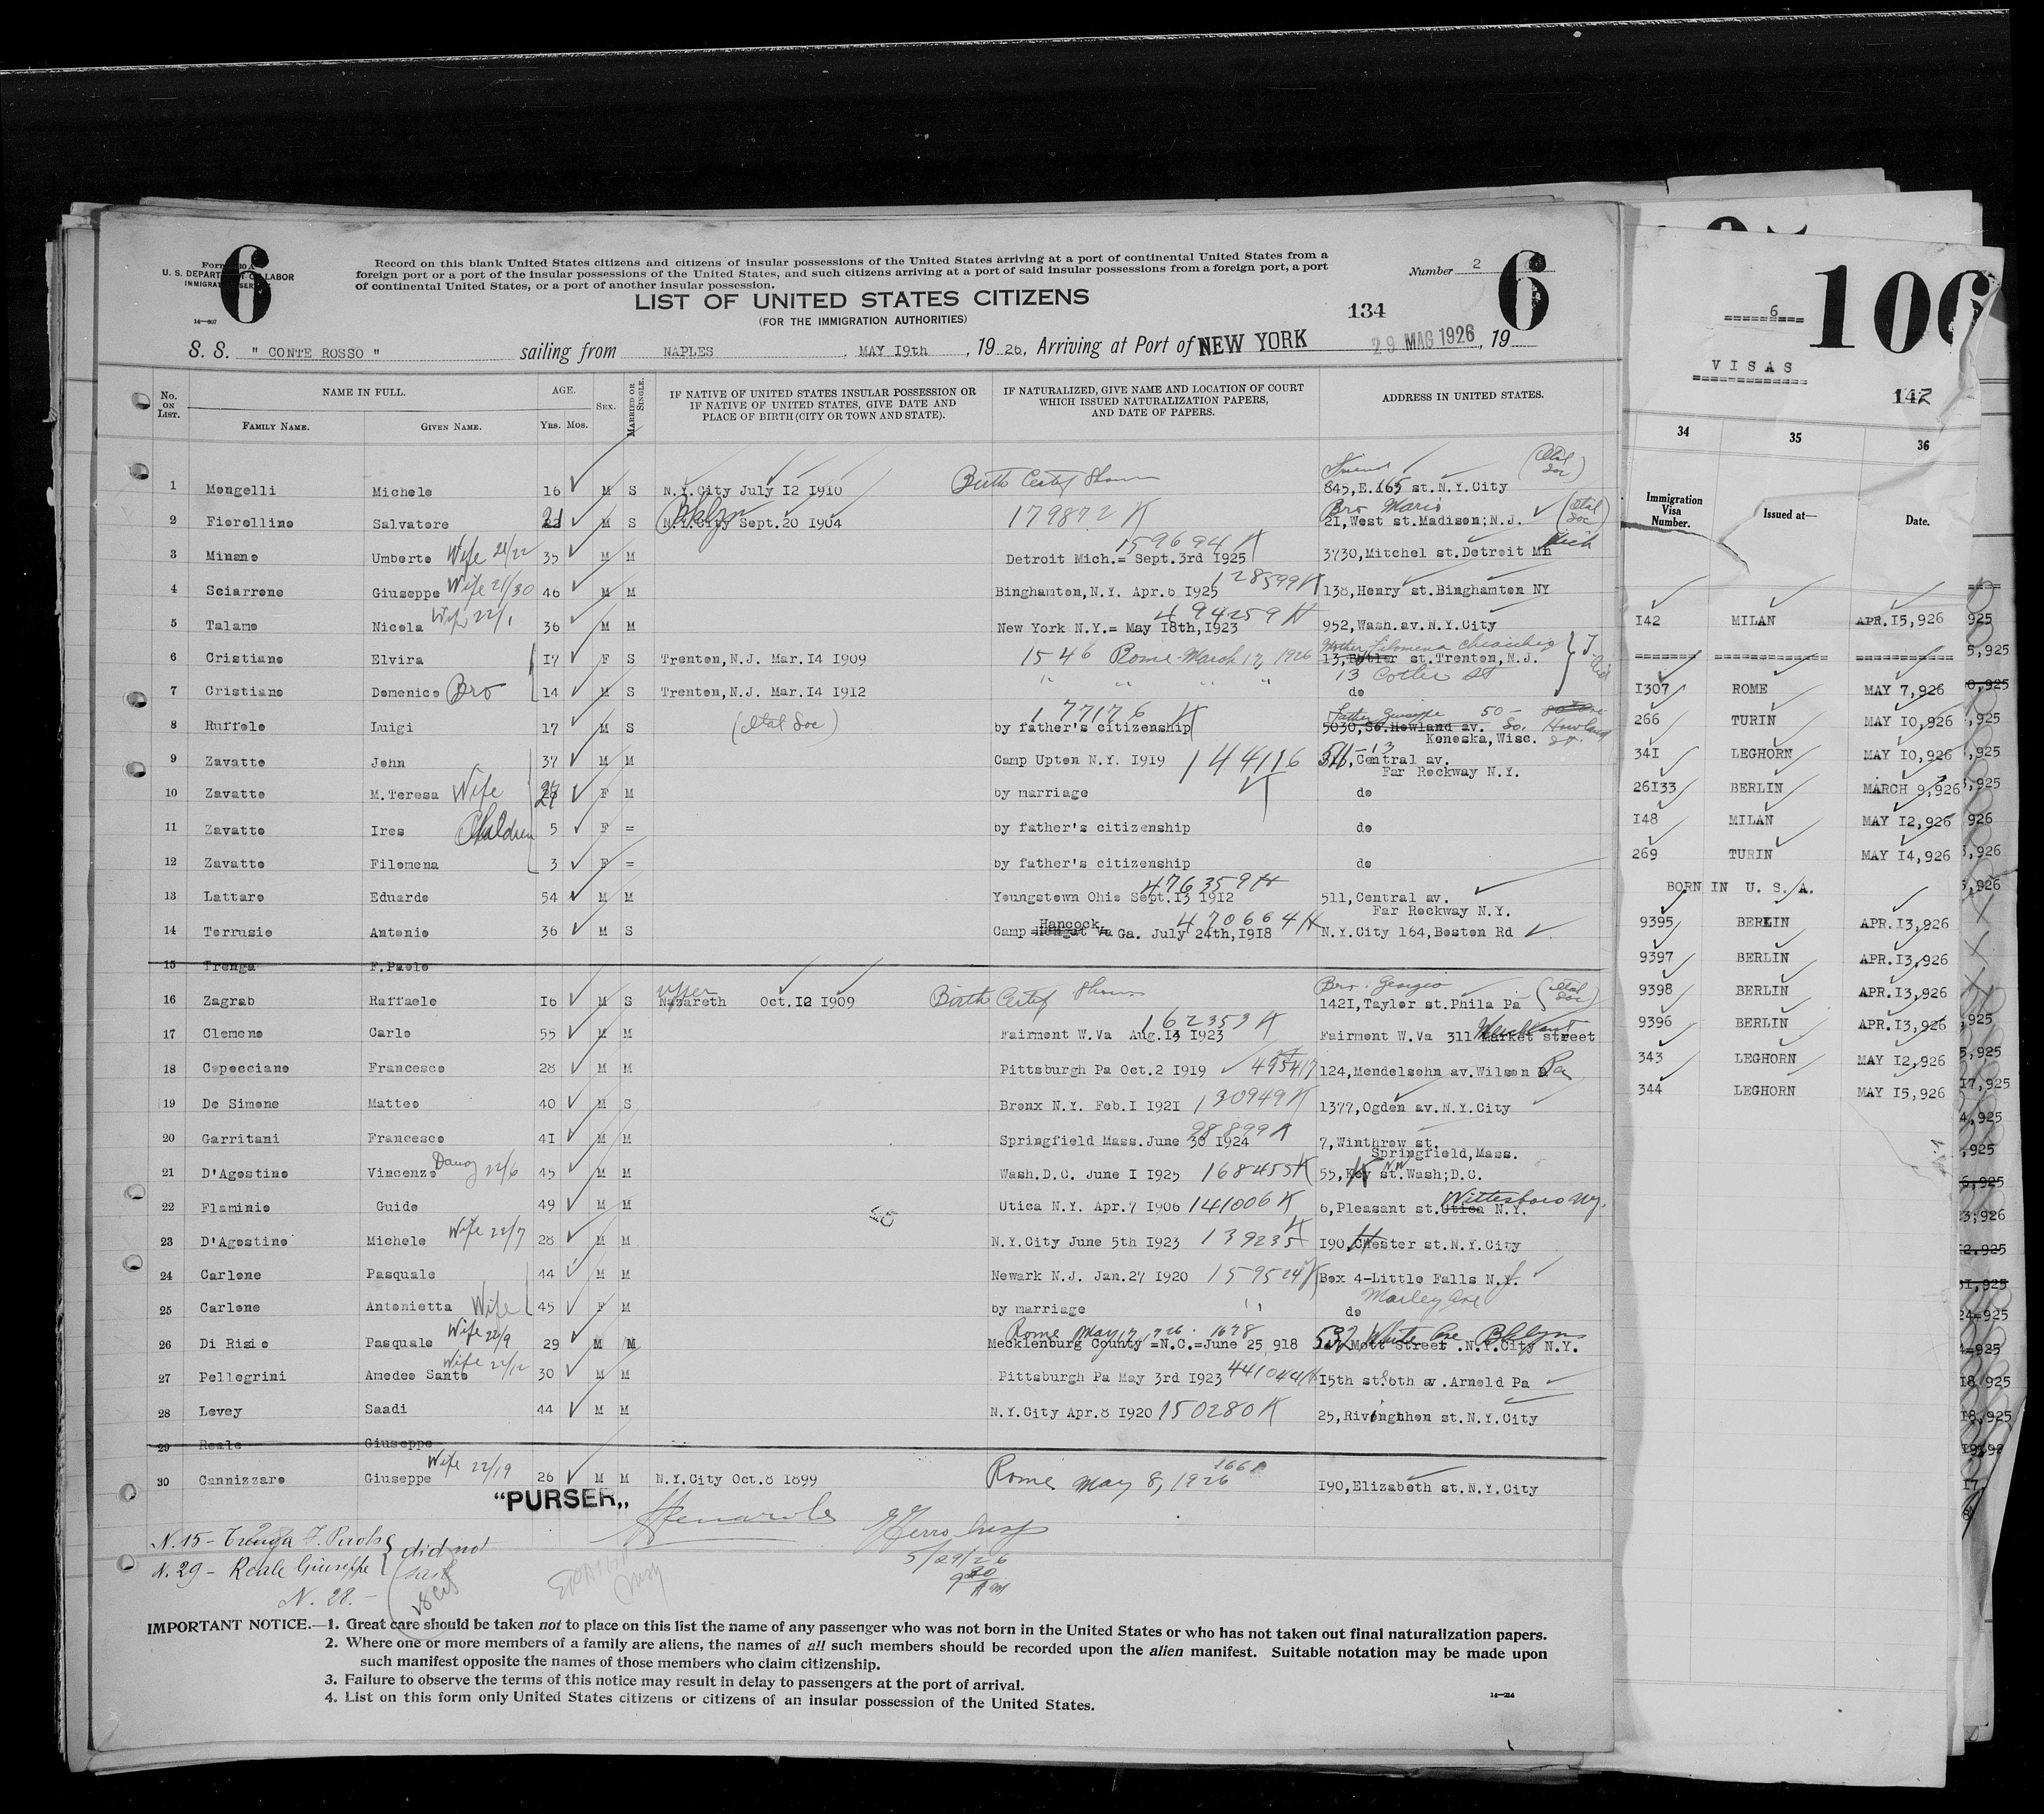 6
6
Form 630 A
U. S. DEPARTMENT OF LABOR
IMMIGRATION SERVICE
14—607
Record on this blank United States citizens and citizens of insular possessions of the United States arriving at a port of continental United States from a
foreign port or a port of the insular possessions of the United States, and such citizens arriving at a port of said insular possessions from a foreign port, a port
of continental United States, or a port of another insular possession.
Number 2
LIST OF UNITED STATES CITIZENS
(FOR THE IMMIGRATION AUTHORITIES)
134
S. S. " CONTE ROSSO " sailing from NAPLES , MAY I9th , 19 26, Arriving at Port of NEW YORK 29 MAG 1926, 19
No. ON LIST. NAME IN FULL. FAMILY NAME. GIVEN NAME. AGE. YRS. MOS. SEX. MARRIED OR SINGLE. IF NATIVE OF UNITED STATES INSULAR POSSESSION OR IF NATIVE OF UNITED STATES, GIVE DATE AND PLACE OF BIRTH (CITY OR TOWN AND STATE). IF NATURALIZED, GIVE NAME AND LOCATION OF COURT WHICH ISSUED NATURALIZATION PAPERS, AND DATE OF PAPERS. ADDRESS IN UNITED STATES.
Friend (Ital Soc)
1 Mongelli Michele 16 M S N.Y.City July I2 I9I0 Birth Certif Shown 845,E.165 st.N.Y.City
Bklyn Bro Mario (Ital Soc)
2 Fiorellino Salvatore 21 M S N.Y.City Sept.20 I904 179872 K 2I,West st.Madison;N.J.
159694 K Mich
3 Minano Umberto Wife 21/22 35 M M Detroit Mich.= Sept.3rd I925 3730,Mitchel st.Detroit Mh
128599 K
4 Sciarrone Giuseppe Wife 21/30 46 M M Binghamton,N.Y. Apr.6 I925 I38,Henry st.Binghamton NY
494259 H
5 Talamo Nicola Wife 22/1 36 M M New York N.Y.= May I8th,I923 952,Wash.av.N.Y.City
Mother Filomena
6 Cristiano Elvira I7 F S Trenton,N.J. Mar.I4 I909 1546 Rome March 17, 1926 I3,Butler st.Trenton,N.J.
13 Cotler St
7 Cristiano Domenico Bro I4 M S Trenton,N.J. Mar.I4 I9I2 " " " " do
177176 K Father Giuseppe 50— So. Howland
8 Ruffolo Luigi I7 M S (Ital Soc) by father's citizenship 5030,So.Howland av.
Keneska,Wisc.
9 Zavatto John 37 M M Camp Upton N.Y. I9I9 144116 K 511-13,Central av.
Far Rockway N.Y.
10 Zavatto M.Teresa Wife 27 F M by marriage do
11 Zavatto Ires Children 5 F = by father's citizenship do
12 Zavatto Filomena 3 F = by father's citizenship do
476359 H
13 Lattaro Eduardo 54 M M Youngstown Ohio Sept.I3 I9I2 5II,Central av.
Far Rockway N.Y.
Hancock 470664 H
14 Terrusio Antonio 36 M S Camp Ga. July 24th,I9I8 N.Y.City I64,Boston Rd
15 Trenga F.Paolo
upper Bro. Georgio (Ital Soc)
16 Zagrab Raffaele I6 M S Nazareth Oct.I2 I909 Birth Certif Shown I42I,Taylor st.Phila Pa
162353 K Merchant
17 Clemeno Carlo 55 M M Fairmont W.Va Aug.I3 I923 Fairmont W.Va 311 Market street
18 Capocciano Francesco 28 M M Pittsburgh Pa Oct.2 I9I9 495417 I24,Mendelsohn av.Wilson Pa
19 De Simone Matteo 40 M S Bronx N.Y. Feb.I I92I 130949 K I377,Ogden av.N.Y.City
98899 K
20 Garritani Francesco 4I M M Springfield Mass.June 30 I924 7,Winthrow st.
Springfield,Mass.
21 D'Agostino Vincenzo 22/6 45 M M Wash.D.C. June I I925 168455 K 55,Key st. NW Wash;D.C.
22 Flaminio Guido 49 M M Utica N.Y. Apr.7 I906 141006 K 6,Pleasant st.Utica N.Y. Wittesboro NY.
23 D'Agostino Michele Wife 22/7 28 M M N.Y.City June 5th I923 139235 K I90,Chester st.N.Y.City
24 Carlone Pasquale 44 M M Newark N.J. Jan.27 I920 159524 K Box 4-Little Falls N.J.
Marley Ave
25 Carlone Antonietta Wife 45 F M by marriage " do
Rome May 17, 1926. 1678 532 White Ave Bklyn
26 Di Risio Pasquale Wife 22/9 29 M M Mecklenburg County =N.C.=June 25 9I8 Mott Street .N.Y.City N.Y.
27 Pellegrini Amedeo Santo Wife 22/12 30 M M Pittsburgh Pa May 3rd I923 441044 H I5th st.8th av.Arnold Pa
28 Levey Saadi 44 M M N.Y.City Apr.8 I920 150280 K 25,Rivinghon st.N.Y.City
29 Reale Giuseppe
30 Cannizzaro Giuseppe Wife 22/19 26 M M N.Y.City Oct.8 I899 Rome May 8, 1926 I90,Elizabeth st.N.Y.City
"PURSER„
5/29/26
9 20 AM
N. 15 - Trenga F. Paolo } did not
N. 29 - Reale Giuseppe } sail
N. 28. -
IMPORTANT NOTICE.—1. Great care should be taken not to place on this list the name of any passenger who was not born in the United States or who has not taken out final naturalization papers.
2. Where one or more members of a family are aliens, the names of all such members should be recorded upon the alien manifest. Suitable notation may be made upon
such manifest opposite the names of those members who claim citizenship.
3. Failure to observe the terms of this notice may result in delay to passengers at the port of arrival.
4. List on this form only United States citizens or citizens of an insular possession of the United States.
14—254
106
6
VISAS
142
34 35 36
Immigration Visa Number. Issued at— Date.
I42 MILAN APR.I5,926
I307 ROME MAY 7,926
266 TURIN MAY I0,926
34I LEGHORN MAY I0,926
26I33 BERLIN MARCH 9,926
I48 MILAN MAY I2,926
269 TURIN MAY I4,926
BORN IN U. S. A.
9395 BERLIN APR.I3,926
9397 BERLIN APR.I3,926
9398 BERLIN APR.I3,926
9396 BERLIN APR.I3,926
343 LEGHORN MAY I2,926
344 LEGHORN MAY I5,926